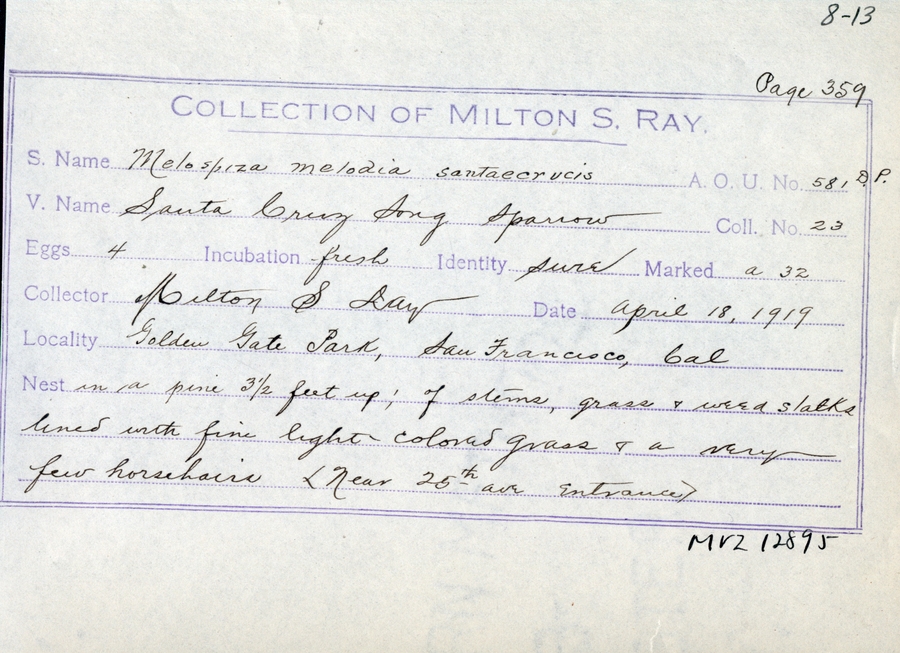 8-13
Page 359
COLLECTION OF MILTON S. RAY.
S. Name Melospiza melodia santaecrucis A. O. U. No. 581, P.
V. Name Santa Cruz Song Sparrow Coll. No. 23
Eggs 4 Incubation fresh Identity sure Marked a 32
Collector Milton S Ray Date april 18, 1919
Locality Golden Gate Park, San Francisco, Cal
Nest in a pine 3½ feet up; of stems, grass & weed stalks
lined with fine light-colored grass & a very
few horsehairs (Near 25th ave entrance)
MVZ 12895